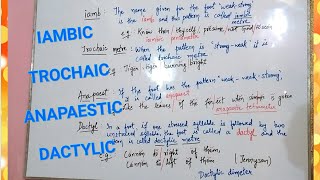 iamb: The name given for the foot "weak strong"
is the iamb and this pattern is called iambic
metre
IAMBIC
e.g. Know then thyself; presume not God to scan
iambic pentametre
TROCHAIC
Trochaic metre: When the pattern is "strong-weak" it is
called trochaic metre.
e.g. Tiger! Tiger! burning bright
Anapaest: If the foot has the pattern "weak-weak-strong",
it is called anapaest
ANAPAESTIC
the leaves of the forest when summer is green
(anapaestic tetrametre)
Dactyl: In a foot, if one stressed syllable is followed by two
unstressed syllables, the foot is called a dactyl and the
DACTYLIC
is called dactylic metre.
e.g. Cannon to right of them,
Cannon to left of them (Tennyson)
Dactylic dimeter